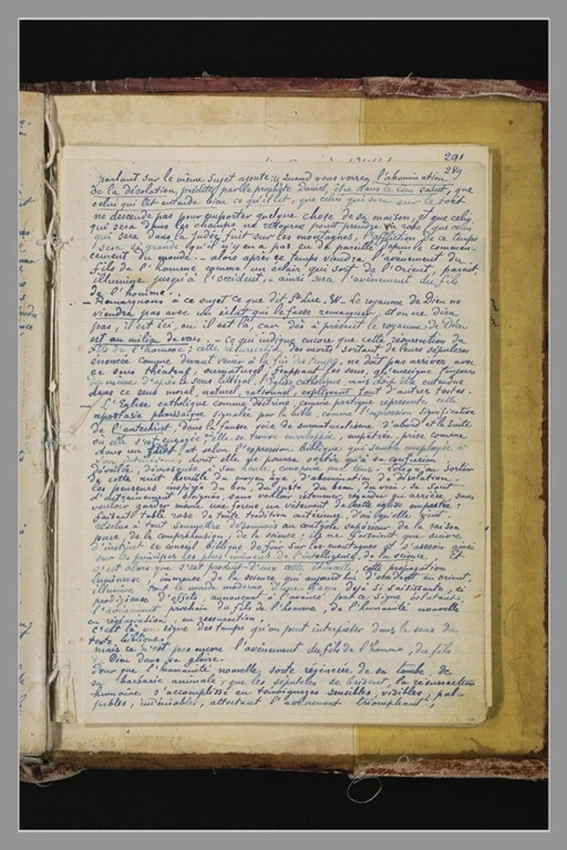 291
289
parlant sur le même sujet ajoute: Quand vous verrez l'abomination
de la désolation, prédite par le prophète Daniel, être dans le lieu saint, que
celui qui lit entende bien ce qu'il lit, que celui qui sera sur le toit
ne descende pas pour emporter quelque chose de sa maison, et que celui
qui sera dans les champs ne retourne point prendre sa robe, que celui
qui sera dans la Judée fuit sur les montagnes, l'affliction de ce temps
sera si grande qu'il n'y en a pas eu de pareille depuis le commen-
cement du monde. - alors après ce temps viendra l'avènement du
fils de l'homme comme un éclair qui sort de l'Orient, paraît
illumine jusqu'à l'occident, - ainsi sera l'avènement du fils
de l'homme.
- Remarquons à ce sujet ce que dit St Luc. Le royaume de Dieu ne
viendra pas avec un éclat qui le fasse remarquer, et on ne dira
pas, il est ici ou il est là, car dès à présent le royaume de Dieu
est au milieu de vous, - ce qui indique encore que cette résurrection du
fils de l'homme; cette résurrection des morts sortant de leurs sépulcres
annoncé comme devant venir à la fin des temps, ne doit pas arriver avec
ce sens théâtral, surnaturel, frappant les sens, qu'enseigne toujours
de même d'après le sens littéral, l'Eglise catholique, mais doit être entendue
dans ce sens moral, naturel, rationnel, expliquant tant d'autres textes.
l'Eglise catholique comme doctrine comme pratique représente cette
apostasie pharisaïque signalée par la bible, comme l'expression significative
de l'antechrist, dans la fausse voie de surnaturalisme d'abord et la suite
où elle s'est engagée elle se trouve enveloppée, empêtrée, prise comme
dans un filet selon l'expression biblique
dont elle ne pourra sortir qu'à sa confusion
dévoilée, démasquée à son honte
de cette nuit horrible du moyen âge, d'abomination de désolation
les penseurs inspirés du bon, du juste du beau, du vrai, se sont
éloignés, sans vouloir retourner, regarder en arrière, sans
vouloir garder même une forme, un vêtement de cette église empestée:
faisant table rase de toute tradition antérieure,
résolus à tout soumettre désormais au contrôle supérieur de la raison
pure, de la compréhension, de la science; ils ne faisaient que suivre
d'instinct ce conseil biblique de fuir sur les montagnes et s'asseoir ainsi
sur les principes les plus éminents de l'intelligence, de la science. Et
c'est alors que s'est produit cette propagation
lumineuse, immense de la science, qui aujourd'hui d'occident en orient,
illumine tout le monde moderne d'une façon déjà si saisissante, si
prodigieuse d'effets, annonçant à l'avance par ce signe éclatant
l'avènement prochain du fils de l'homme, de l'humanité nouvelle
en régénération, en résurrection.
c'est là un signe des temps qu'on peut interpréter dans le sens du
texte biblique.
mais ce n'est pas encore l'avènement du fils de l'homme, du fils
de Dieu dans sa gloire.
Pour que l'humanité nouvelle, sorte régénérée de sa tombe, de
sa barbarie animale, que les sépulcres se brisent, la résurrection
humaine s'accomplisse en témoignages sensibles, visibles, pal-
pables, indéniables, attestant l'avènement triomphant,